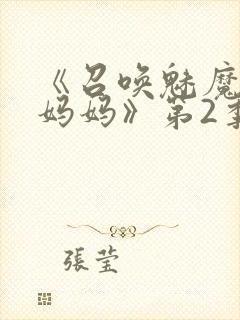 《召唤魅魔
妈妈》第2季
張莹